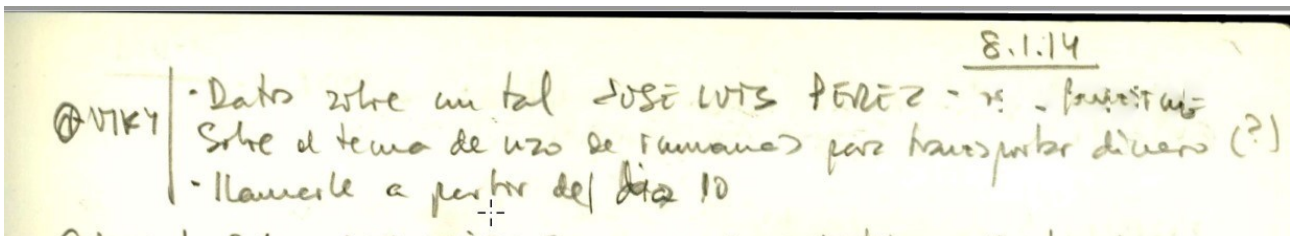 8.1.14
VIKY · Datos sobre un tal JOSE LUIS PEREZ -
Sobre el tema de uso de rumanas para transportar dinero (?)
· llamarle a partir del día 10